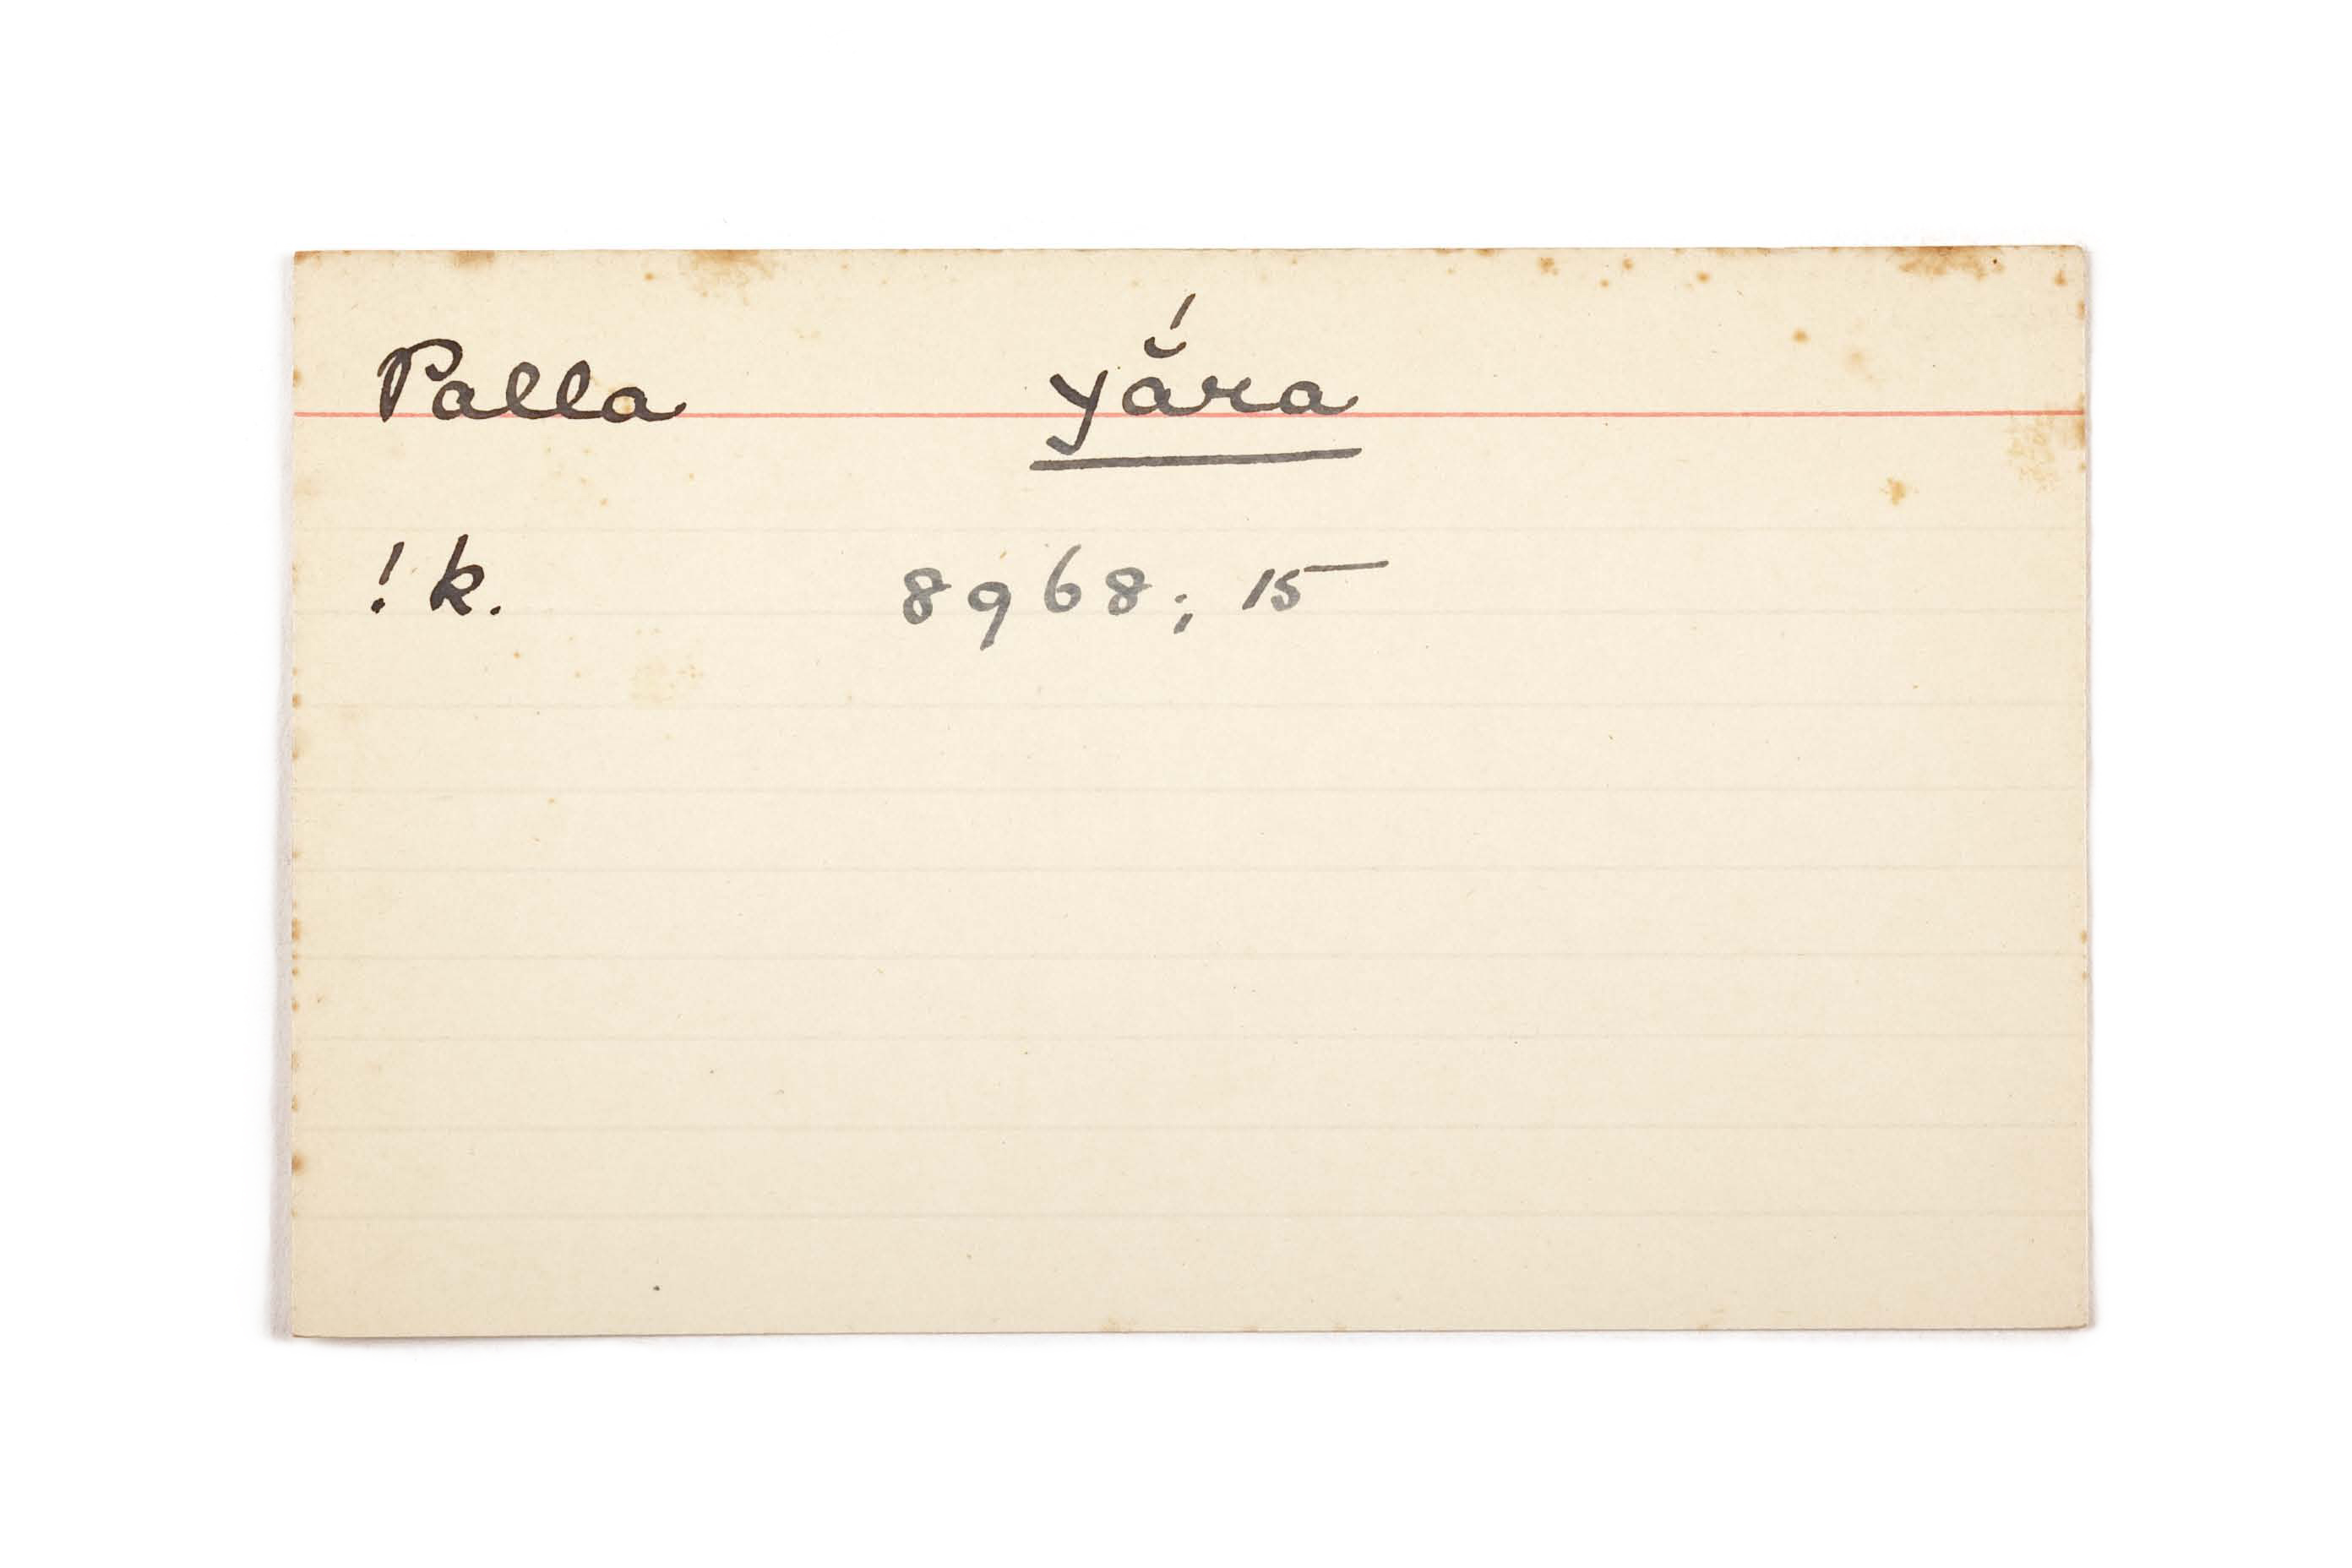 Palla yắra
! k. 8968; 15